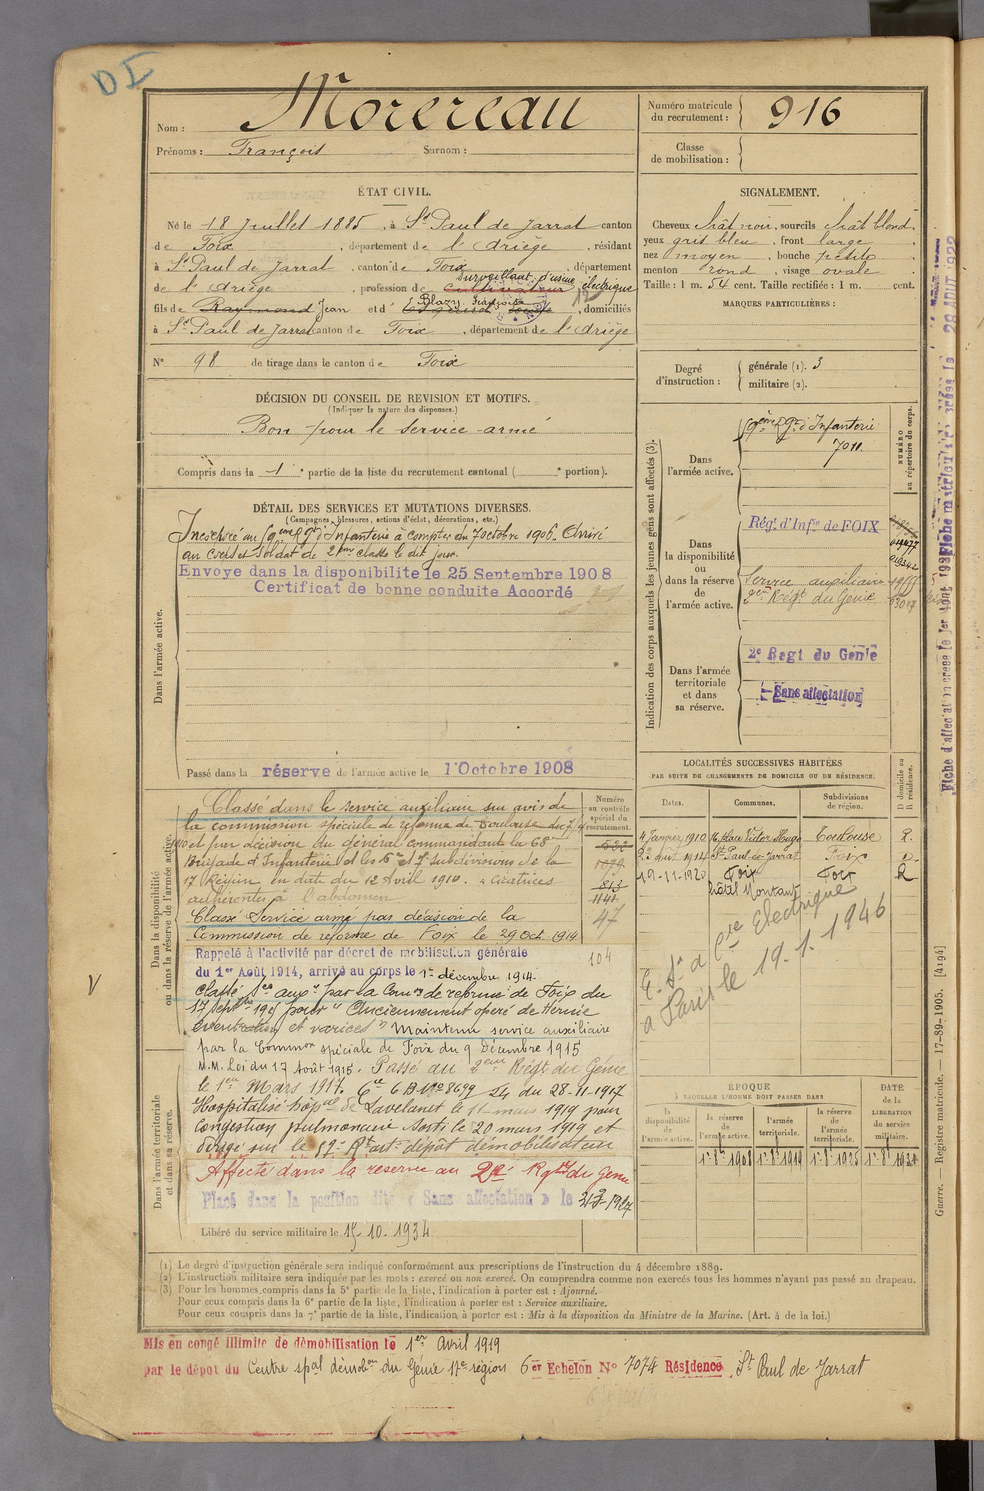 DI
Nom : Morereau
Prénoms : François Surnom :
Numéro matricule du recrutement : 916
Classe de mobilisation :
ÉTAT CIVIL.
Né le 18 Juillet 1885, à St Paul de Jarrat canton
de Foix, département de l'Ariège, résidant
à St Paul de Jarrat, canton de Foix, département
surveillant d'usine électrique
de l'Ariège, profession de cultivateur
Blazy Françoise
fils de Raymond Jean et d', domiciliés
à St Paul de Jarrat canton de Foix, département de l'Ariège
N° 98 de tirage dans le canton de Foix
SIGNALEMENT.
Cheveux chât noir, sourcils chât blond,
yeux gris bleu, front large,
nez moyen, bouche petite,
menton rond, visage ovale.
Taille : 1 m. 54 cent. Taille rectifiée : 1 m. cent.
MARQUES PARTICULIÈRES :
Degré d'instruction : générale (1). 3
militaire (2).
DÉCISION DU CONSEIL DE REVISION ET MOTIFS.
(Indiquer la nature des dispenses.)
Bon pour le service armé
Compris dans la 1e partie de la liste du recrutement cantonal ( e portion).
DÉTAIL DES SERVICES ET MUTATIONS DIVERSES.
(Campagnes, blessures, actions d'éclat, décorations, etc.)
Dans l'armée active.
Incorporé au 59ème Rgt d'Infanterie à compter du 7 octobre 1906. Arrivé
au corps et soldat de 2ème classe le dit jour.
Envoyé dans la disponibilité le 25 Septembre 1908
Certificat de bonne conduite Accordé
Passé dans la réserve de l'armée active le 1 Octobre 1908
Indication des corps auxquels les jeunes gens sont affectés (3).
NUMÉRO au répertoire du corps.
Dans l'armée active.
59ème Rgt d'Infanterie
7011
Dans la disponibilité ou dans la réserve de l'armée active.
Rég. d'Infie de FOIX
Service auxiliaire
2ème Régt du Génie
Dans l'armée territoriale et dans sa réserve.
2e Regt du Génie
Sans affectation
Dans la disponibilité ou dans la réserve de l'armée active.
Numéro au contrôle spécial du recrutement.
Classé dans le service auxiliaire sur avis de
la commission spéciale de réforme de Toulouse du 7
et par décision du général commandant la 68e
Brigade d'Infanterie et les 6e et 7e subdivisions de la
17e Région en date du 12 Avril 1910. "Cicatrices
adhérentes à l'abdomen
Classé Service armé par décision de la
Commission de réforme de Foix le 29 Oct. 1914
813
1141
47
104
Rappelé à l'activité par décret de mobilisation générale
du 1er Août 1914, arrivé au corps le 1er décembre 1914.
Classé Sce auxre par la Comon de réforme de Foix du
17 septbre 1915 pour "Anciennement opéré de hernie
éventration et varices" Maintenu service auxiliaire
par la Common spéciale de Foix du 9 Décembre 1915
M.M. Loi du 17 Août 1915. Passé au 2ème Régt du Génie
le 1er Mars 1917. Cre 6 B. Mre 8699 S4 du 28-11-1917
Hospitalisé hôpal de Lavelanet le 11 mars 1919 pour
congestion pulmonaire Sorti le 20 mars 1919 et
dirigé sur le 17e dépôt démobilisateur
Affecté dans la réserve au 2e Rgt du Génie
Placé dans la position dite « Sans affectation » le 1927
Dans l'armée territoriale et dans sa réserve.
Libéré du service militaire le 15.10.1934
LOCALITÉS SUCCESSIVES HABITÉES
PAR SUITE DE CHANGEMENTS DE DOMICILE OU DE RÉSIDENCE.
Dates. Communes. Subdivisions de région. D domicile ou R résidence.
4 Janvier 1910 16, place Victor Hugo Toulouse R.
23 avril 1914 St Paul-de-Jarrat Foix D.
19-11-1920 Foix Foix R
hôtel Montaut
à Paris le 19.1.1946
ÉPOQUE
À LAQUELLE L'HOMME DOIT PASSER DANS
la disponibilité de l'armée active. la réserve de l'armée active. l'armée territoriale. la réserve de l'armée territoriale.
DATE de la LIBÉRATION du service militaire.
1er 8bre 1908 1er 8bre 1919 1er 8bre 1925 1er 8bre 1931
(1) Le degré d'instruction générale sera indiqué conformément aux prescriptions de l'instruction du 4 décembre 1889.
(2) L'instruction militaire sera indiquée par les mots : exercé ou non exercé. On comprendra comme non exercés tous les hommes n'ayant pas passé au drapeau.
(3) Pour les hommes compris dans la 5e partie de la liste, l'indication à porter est : Ajourné.
Pour ceux compris dans la 6e partie de la liste, l'indication à porter est : Service auxiliaire.
Pour ceux compris dans la 7e partie de la liste, l'indication à porter est : Mis à la disposition du Ministre de la Marine. (Art. 4 de la loi.)
Mis en congé illimité de démobilisation le 1er Avril 1919
par le dépôt du Centre spal démobon du Génie 17e région 6er Echelon N° 7074 Résidence St Paul de Jarrat
Guerre. — Registre matricule. — 17-89-1905. [4194]